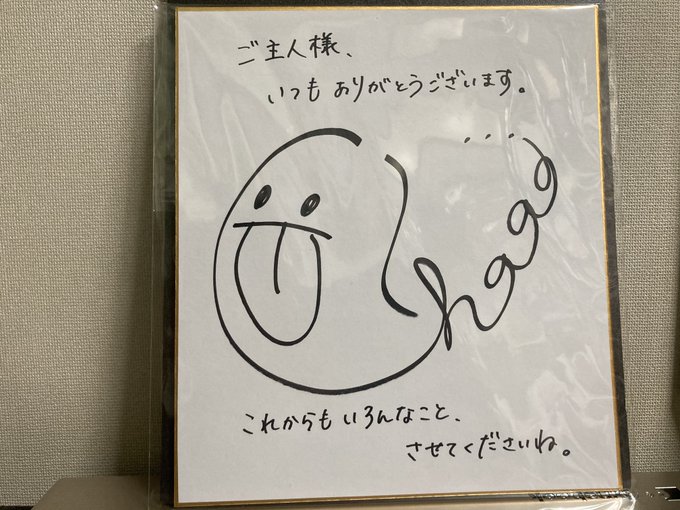 ご主人様、
いつもありがとうございます。
Chage...
これからもいろんなこと、
させてくださいね。